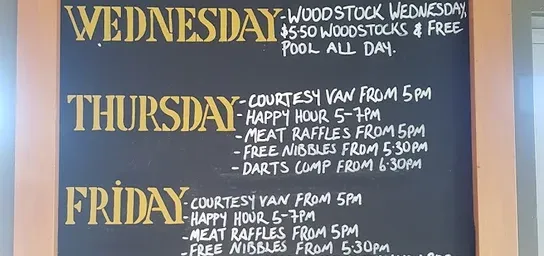 WEDNESDAY -WOODSTOCK WEDNESDAY,
$5.50 WOODSTOCKS & FREE
POOL ALL DAY.
THURSDAY -COURTESY VAN FROM 5PM
-HAPPY HOUR 5-7PM
-MEAT RAFFLES FROM 5PM
-FREE NIBBLES FROM 5.30PM
-DARTS COMP FROM 6.30PM
FRIDAY -COURTESY VAN FROM 5PM
-HAPPY HOUR 5-7PM
-MEAT RAFFLES FROM 5PM
-FREE NIBBLES FROM 5.30PM